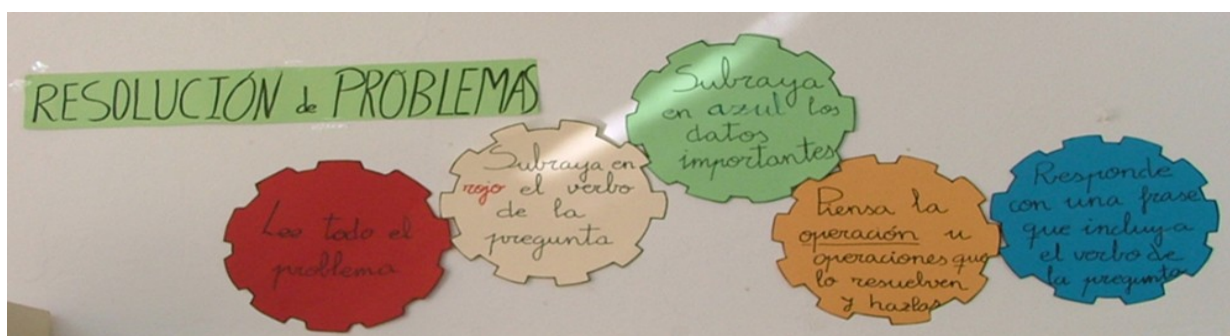 RESOLUCIÓN de PROBLEMAS
Lee todo el
problema
Subraya en
rojo el verbo
de la
pregunta
Subraya
en azul los
datos
importantes
Piensa la
operación u
operaciones que
lo resuelven
y hazlas
Responde
con una frase
que incluya
el verbo de
la pregunta